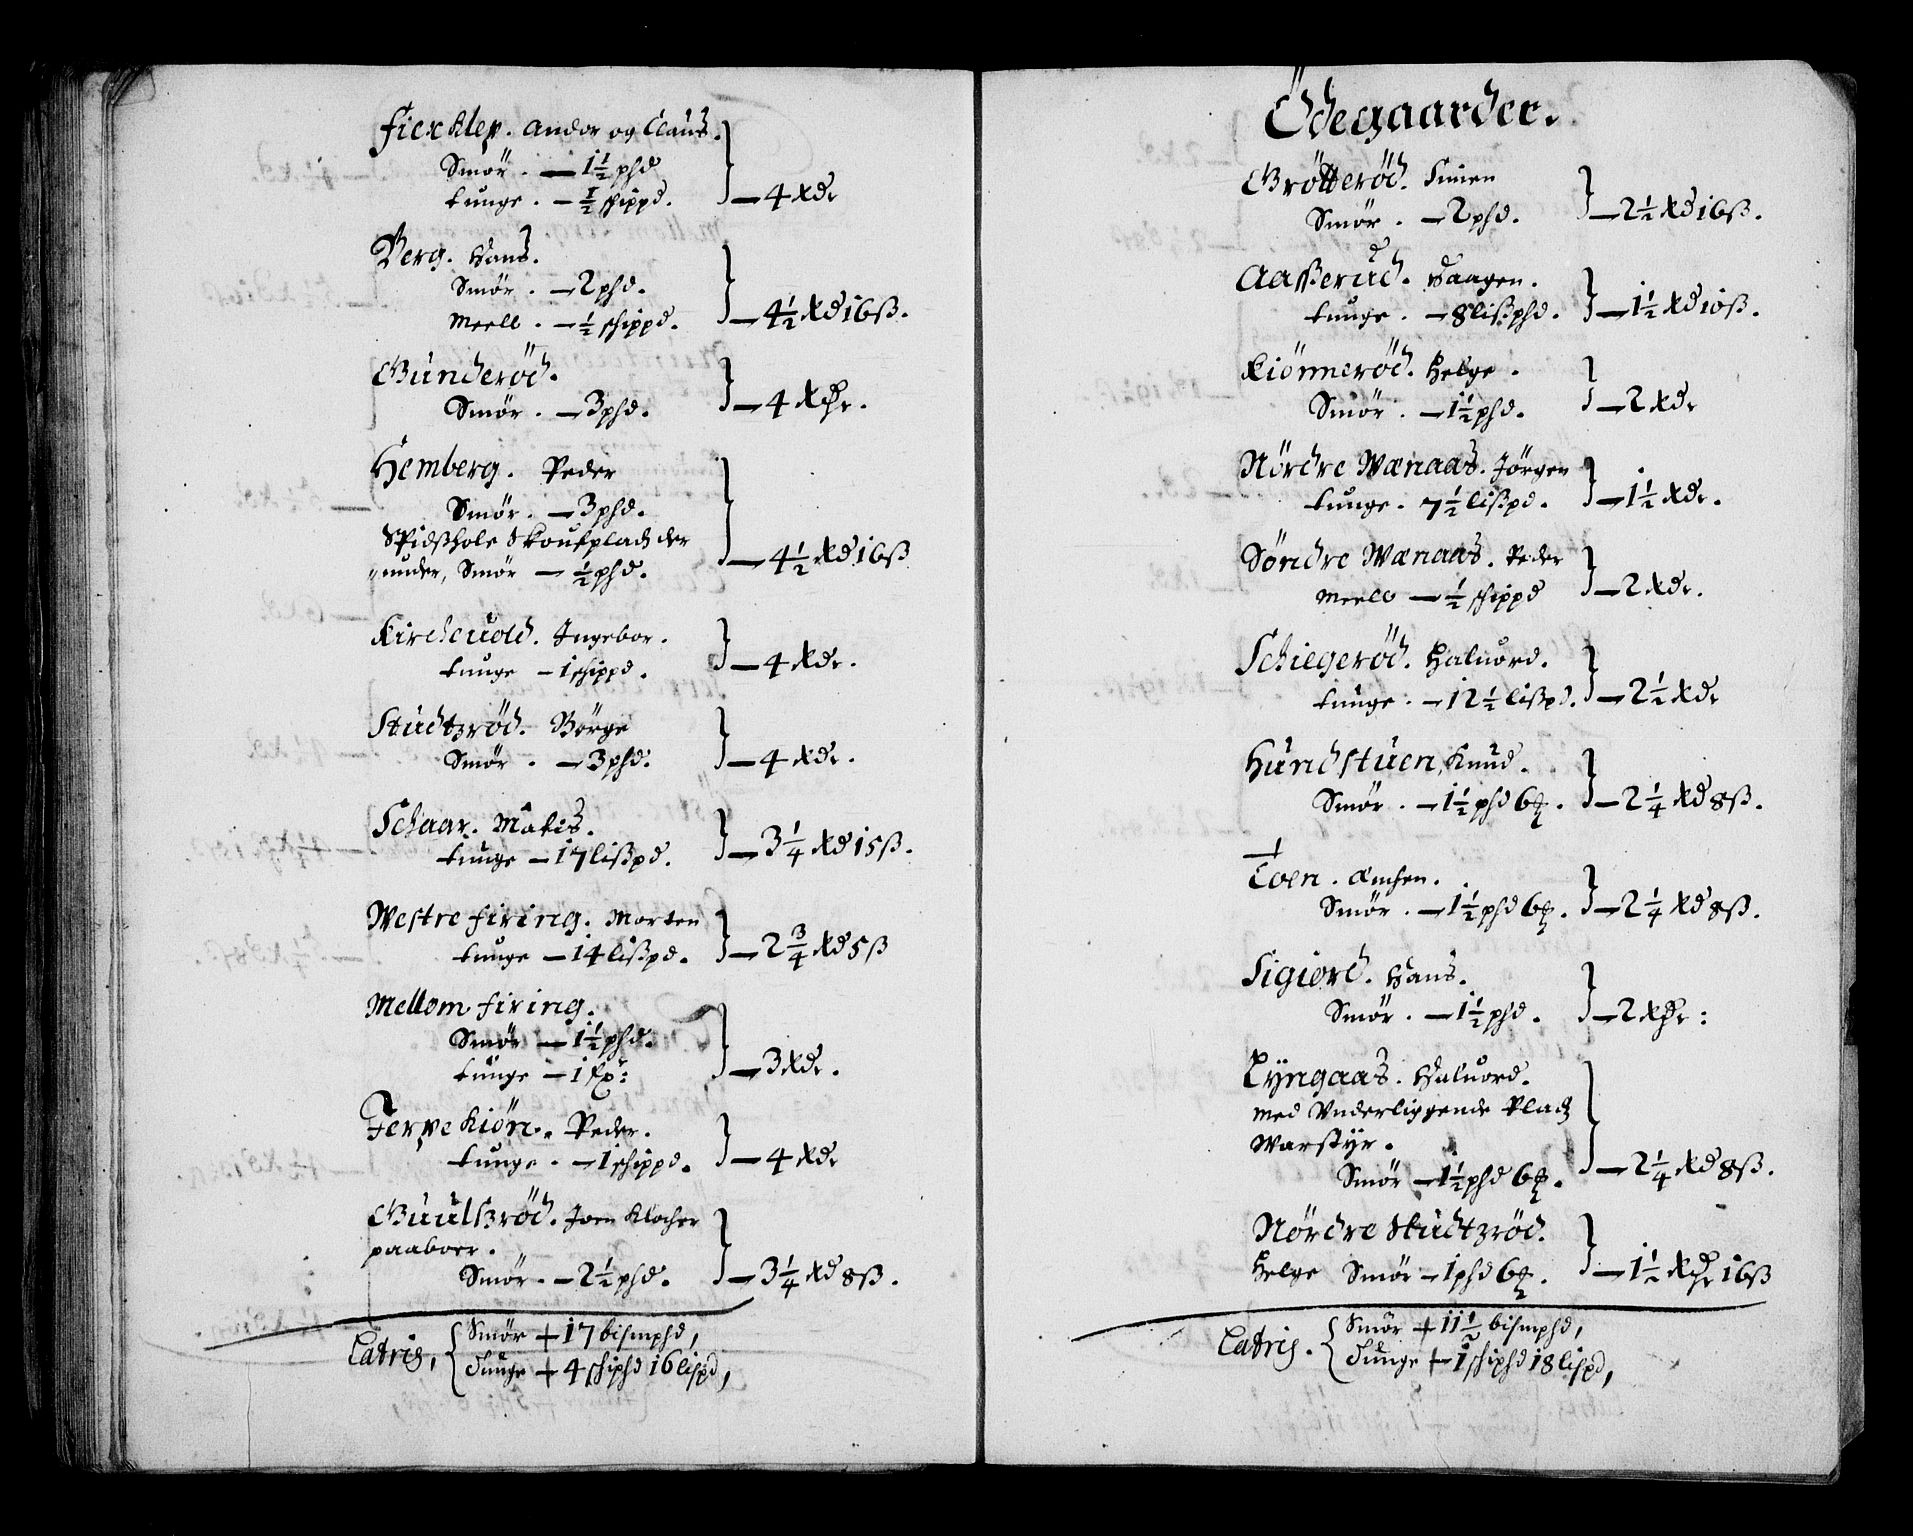 Fiex Klep. Andor og Claus.
Smör. — 1½ phd
tunge. — ½ schippd. — 4 Rdr
Berg. Hans.
Smör. — 2 phd.
Meell. — ½ schippd. — 4½ Rd 16 ß.
Gunderöd.
Smör. — 3 phd. — 4 Rdr.
Hemberg. Peder
Smör. — 3 phd.
Spidßhole Skoufpladz der
under, Smör — ½ phd. — 4½ Rd 16 ß
Kircheuold. Ingebor.
tunge — 1 schippd. — 4 Rdr.
Studtzröd. Börge
Smör. — 3 phd. — 4 Rdr.
Schaar. Matis.
tunge — 17 lißpd. — 3¼ Rd 15 ß.
Westre firing. Morten
tunge — 14 lißpd. — 2¾ Rd 5 ß
Mellom firing.
Smör — 1½ phd.
tunge — 1 — 3 Rdr.
Terpe Kiön. Peder.
tunge. — 1 schippd. — 4 Rdr
Guulßröd. Joen Klocher
paaboer.
Smör. — 2½ phd. — 3¼ Rd 8 ß.
Latris, Smör + 17 bismphd,
Tunge + 4 schiphd 16 lispd,
Ödegaarder.
Grötteröd. Simen
Smör. — 2 phd. — 2½ Rd 16 ß.
Aaßerud. Haagen.
tunge. — 8 lißphd. — 1½ Rd 10 ß.
Kiönneröd. Helge.
Smör. — 1½ phd. — 2 Rdr
Nördre Wænaas. Jörgen
tunge. 7½ lißpd. — 1½ Rdr.
Söndre Wænaas. Peder
Meell — ½ schippd — 2 Rdr.
Schiegeröd. Haluord.
tunge. — 12½ lißpd. — 2½ Rdr
Hundstuen, Knud.
Smör. — 1½ phd 6 — 2¼ Rd 8 ß.
Toen.
Smör. — 1½ phd 6 — 2¼ Rd 8 ß.
Sigiord. Hans.
Smör. — 1½ phd. — 2 Rdr:
Lÿngaas. Haluord.
med Vnderliggende Pladz
Warstÿr.
Smör — 1½ phd 6 — 2¼ Rd 8 ß.
Nördre Studtzröd.
Helge Smör — 1 phd 6 — 1½ Rdr 16 ß
Latris. Smör + 11½ bismphd,
Tunge + 1 schiphd 18 lispd,